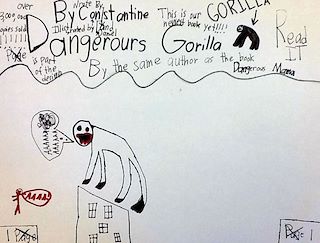 over
3000 000
copies sold
!!!!!
Page
is part
of the
design
By Constantine
Illustrated by
This is our
newest book
yet!!!!
GORILLA
Read
IT
Dangerours Gorilla
By the same author as the book
Dangerous Mama
AAAAAAA
AAAA!
1 Page
Page 1